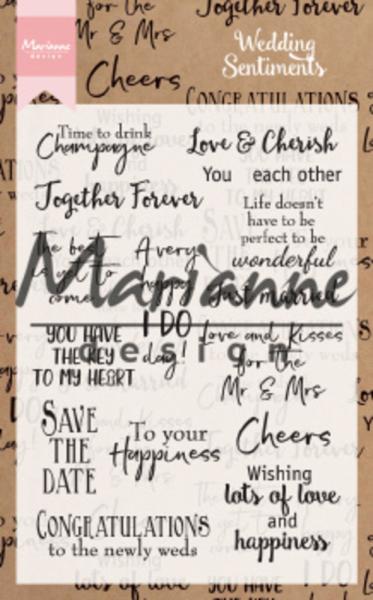 Together Forever
Mr & Mrs
Cheers
Marianne
design
Wedding
Sentiments
CONGRATULATIONS
Time to drink
Champagne
Love & Cherish
You each other
Together Forever
Life doesn't
have to be
perfect to be
wonderful
The best
is yet to
come
A very
happy
day!
Just married
Marianne
design
I DO
YOU HAVE
THE KEY
TO MY HEART
Love and Kisses
for the
Mr & Mrs
SAVE
THE
DATE
To your
Happiness
Cheers
Wishing
lots of love
and
happiness
CONGRATULATIONS
to the newly weds
lots of love
YOU HAVE